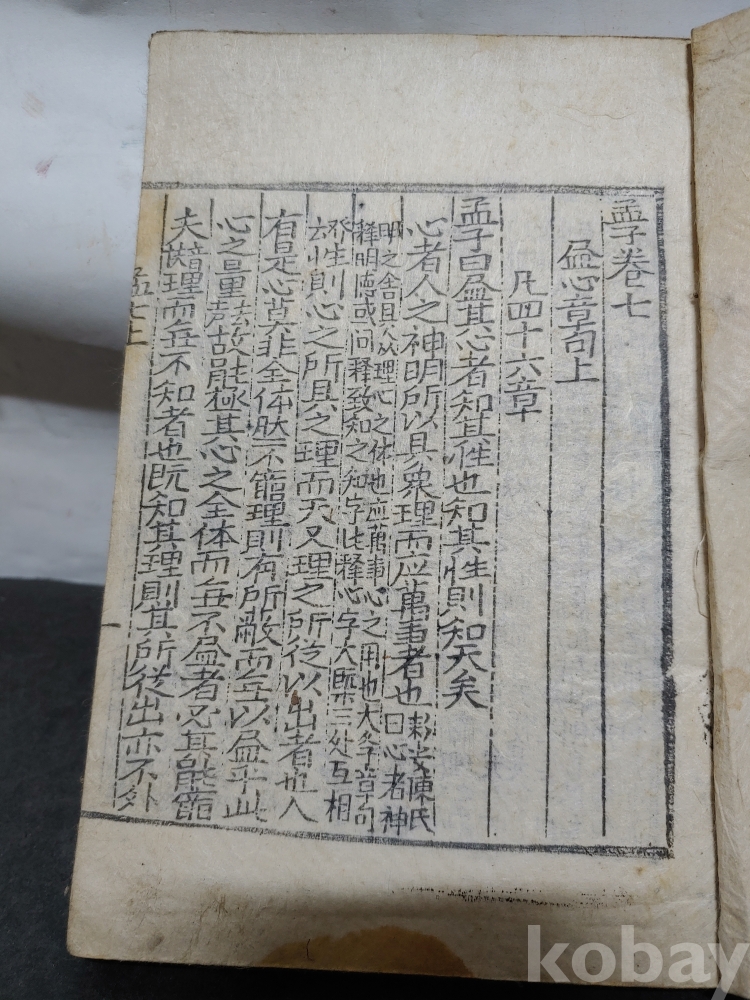 孟子卷七
盡心章句上
凡四十六章
孟子曰盡其心者知其性也知其性則知天矣
心者人之神明所以具衆理而应萬事者也新安陳氏曰心者神
明之舍具衆理心之体也应萬事心之用也大学章句
釋明德或问釋致知之知字比釋心字大槩三处互相
發云性則心之所具之理而天又理之所从以出者也人
有是心莫非全体然不窮理則有所蔽而无以盡乎此
心之量去聲故能極其心之全体而无不盡者必其能窮
夫音扶理而无不知者也既知其理則其所從出亦不外
孟七上
kobay